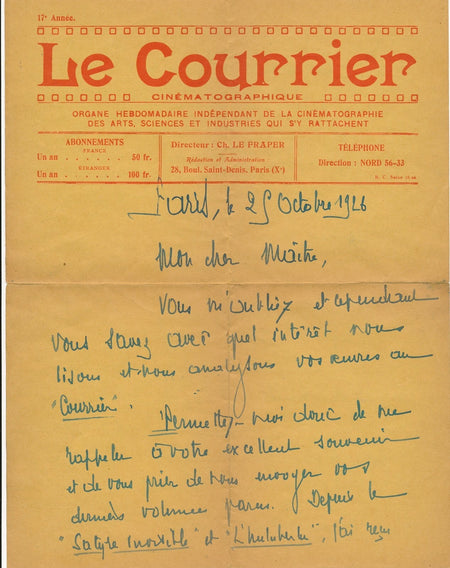 17e Année.
Le Courrier
CINÉMATOGRAPHIQUE
ORGANE HEBDOMADAIRE INDÉPENDANT DE LA CINÉMATOGRAPHIE
DES ARTS, SCIENCES ET INDUSTRIES QUI S'Y RATTACHENT
ABONNEMENTS
FRANCE
Un an . . . . . . 50 fr.
ÉTRANGER
Un an . . . . . . 100 fr.
Directeur : Ch. LE FRAPER
Rédaction et Administration
28, Boul. Saint-Denis, Paris (Xe)
TÉLÉPHONE
Direction : NORD 56-33
R. C. Seine
Paris, le 25 Octobre 1926
Mon cher Maître,
Vous m'oubliez et cependant
vous savez avec quel intérêt nous
lisons et nous analysons vos œuvres au
"Courrier".
Permettez-moi donc de me
rappeler à votre excellent souvenir
et de vous prier de nous envoyer vos
derniers volumes parus. Depuis le
"Satyre Invisible" et "L'huluberlu", j'ai reçu